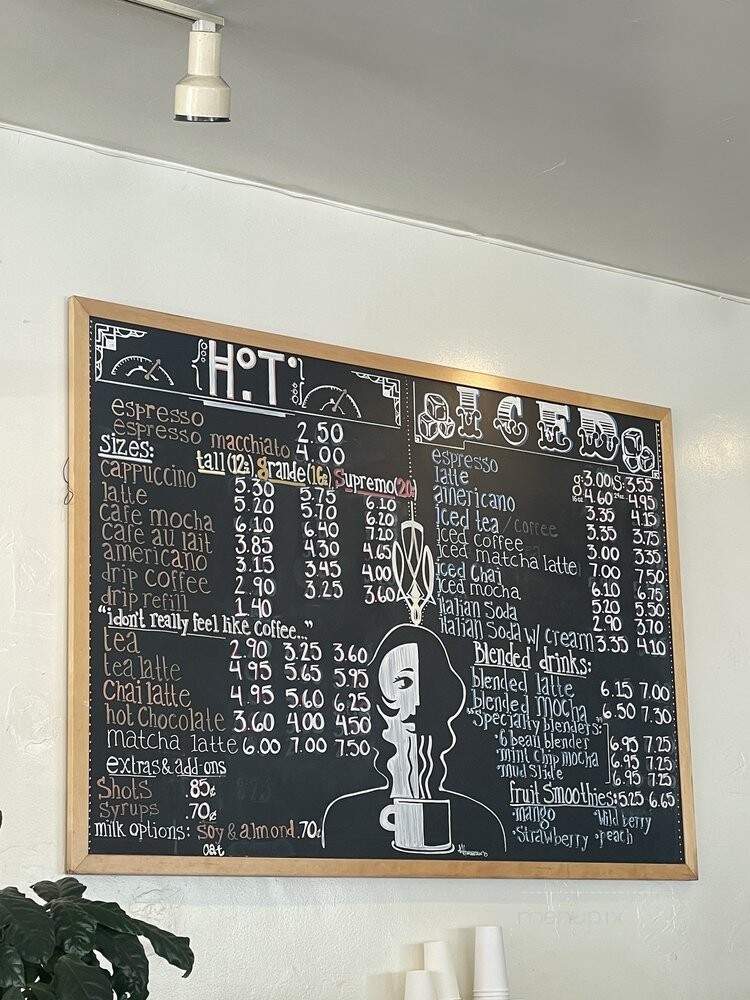 HOT
espresso 2.50
espresso macchiato 4.00
sizes: tall (12oz) grande (16oz) Supremo (20
cappuccino 5.30 5.75 6.10
latte 5.20 5.70 6.20
cafe mocha 6.10 6.40 7.20
cafe au lait 3.85 4.30 4.65
americano 3.15 3.45 4.00
drip coffee 2.90 3.25 3.60
drip refill 1.40
"i don't really feel like coffee..."
tea 2.90 3.25 3.60
tea latte 4.95 5.65 5.95
Chai latte 4.95 5.60 6.25
hot Chocolate 3.60 4.00 4.50
matcha latte 6.00 7.00 7.50
extras & add-ons
Shots .85¢
syrups .70¢
milk options: soy & almond .70¢
oat
ICED
espresso g: 3.00 S: 3.55
latte 4.60 4.95
americano 3.35 4.15
Iced tea / coffee 3.35 3.75
iced coffee 3.00 3.35
iced matcha latte 7.00 7.50
iced Chai 6.10 6.75
iced mocha 5.20 5.50
italian Soda 2.90 3.70
italian Soda w/ cream 3.35 4.10
Blended drinks:
blended latte 6.15 7.00
blended mocha 6.50 7.30
"Specialty blenders:"
• 6 bean blender 6.95 7.25
• mint chip mocha 6.95 7.25
• mud slide 6.95 7.25
fruit Smoothies: 5.25 6.65
• mango • Wild berry
• Strawberry • peach